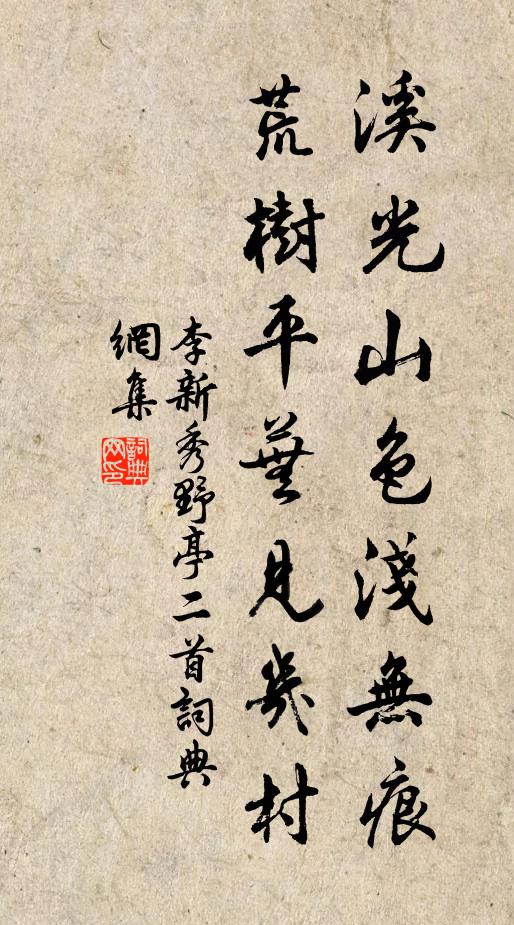 溪光山色淺無痕
荒樹平蕪見幾村
李新秀野亭二首詞典
網集
詞典
网印